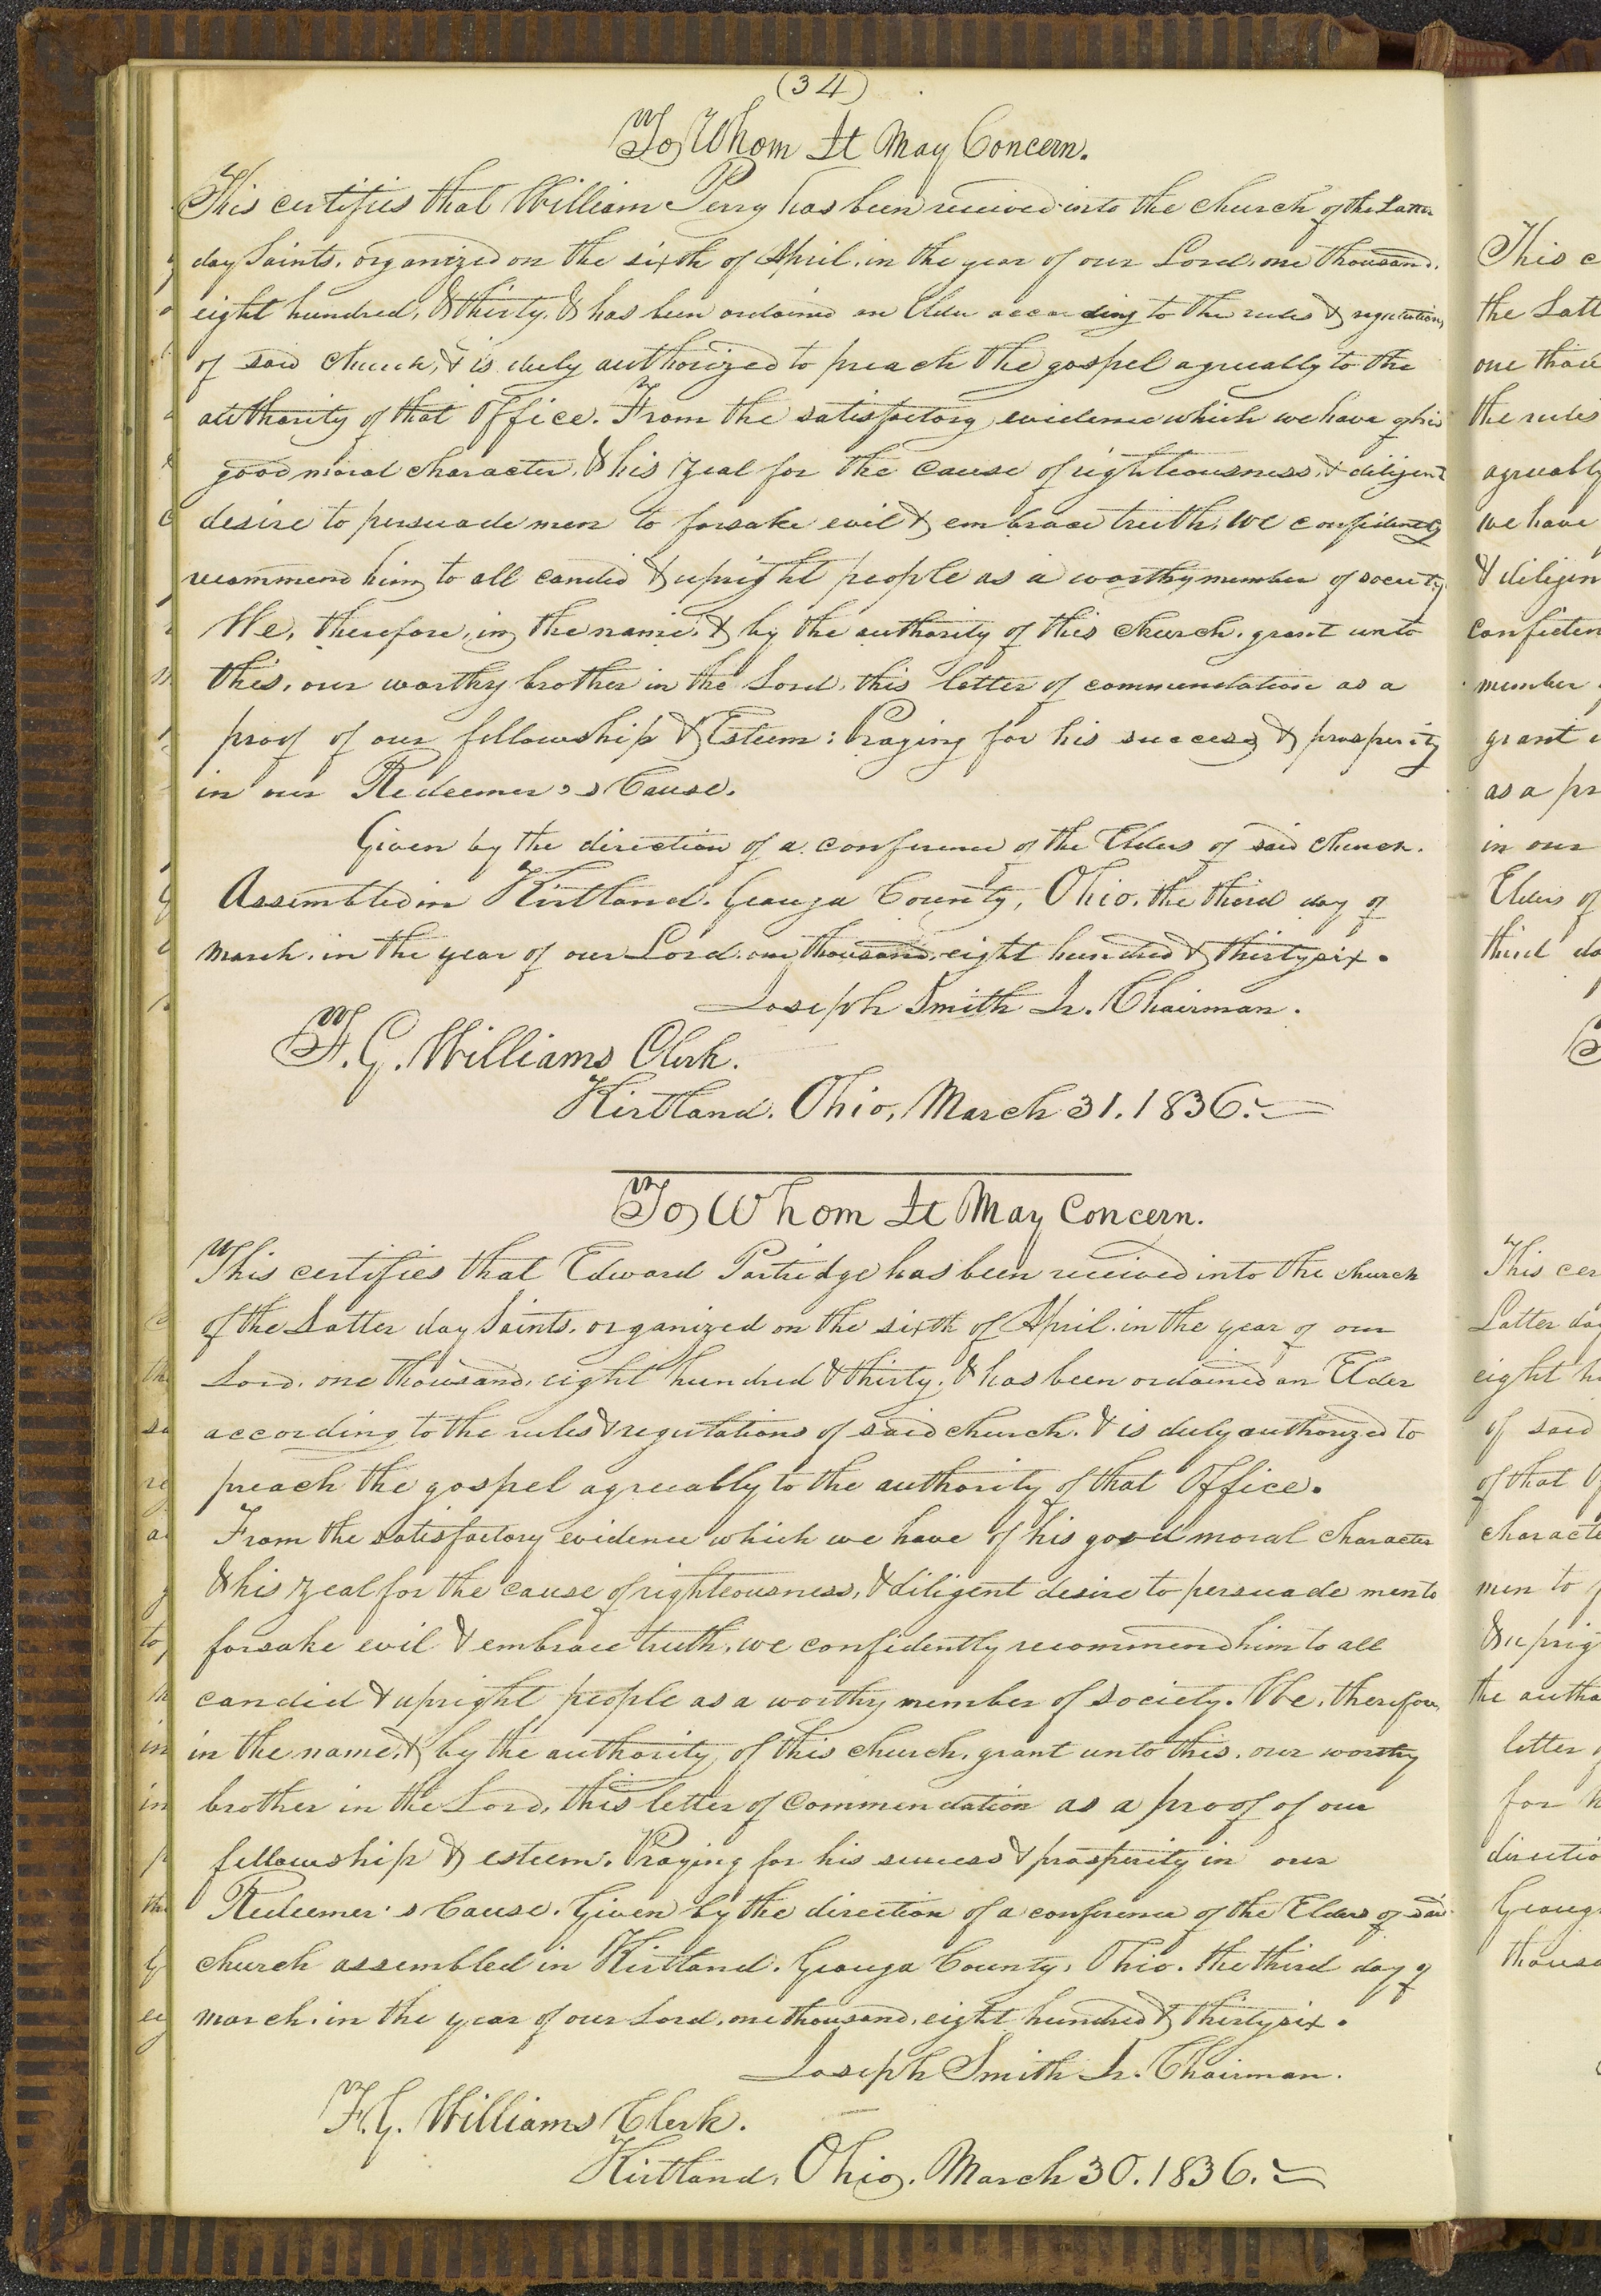 (34)
To Whom It May Concern.
This certifies that William Perry has been received into the church of the Latter
day Saints, organized on the sixth of April, in the year of our Lord, one thousand,
eight hundred, & thirty, & has been ordained an Elder according to the rules & regulations
of said church, & is duly authorized to preach the gospel agreeably to the
authority of that Office. From the satisfactory evidence which we have of his
good moral character, & his zeal for the cause of righteousness, & diligent
desire to persuade men to forsake evil & embrace truth, we confidently
recommend him to all candid & upright people as a worthy member of society.
We, therefore, in the name, & by the authority of this church, grant unto
this, our worthy brother in the Lord, this letter of commendation as a
proof of our fellowship & Esteem: Praying for his success & prosperity
in our Redeemer's Cause.
Given by the direction of a conference of the Elders of said church.
Assembled in Kirtland. Geauga County, Ohio. the third day of
march, in the year of our Lord, one thousand, eight hundred & thirty six.
Joseph Smith Jr. Chairman.
F. G. Williams Clerk.
Kirtland. Ohio, March 31. 1836.
To Whom It May Concern.
This certifies that Edward Partridge has been received into the church
of the Latter day Saints, organized on the sixth of April, in the year of our
Lord, one thousand, eight hundred & thirty, & has been ordained an Elder
according to the rules & regulations of said church, & is duly authorized to
preach the gospel agreeably to the authority of that Office.
From the satisfactory evidence which we have of his good moral character
& his zeal for the cause of righteousness, & diligent desire to persuade men to
forsake evil & embrace truth, we confidently recommend him to all
candid & upright people as a worthy member of society. We, therefore,
in the name, & by the authority, of this church, grant unto this, our worthy
brother in the Lord, this letter of Commendation as a proof of our
fellowship & esteem. Praying for his success & prosperity in our
Redeemer's Cause. Given by the direction of a conference of the Elders of said
church assembled in Kirtland. Geauga County, Ohio. the third day of
march, in the year of our Lord, one thousand, eight hundred & thirty six.
Joseph Smith Jr. Chairman.
F. G. Williams Clerk.
Kirtland, Ohio. March 30. 1836.
This c
the Latt
one thou
the rules
agreeably
we have
& diligen
confiden
member
grant
as a pr
in our
Elders of
third da
This cer
Latter day
eight h
of said
of that
characte
men to
& uprig
the autho
letter
for h
directio
Geaug
thousa